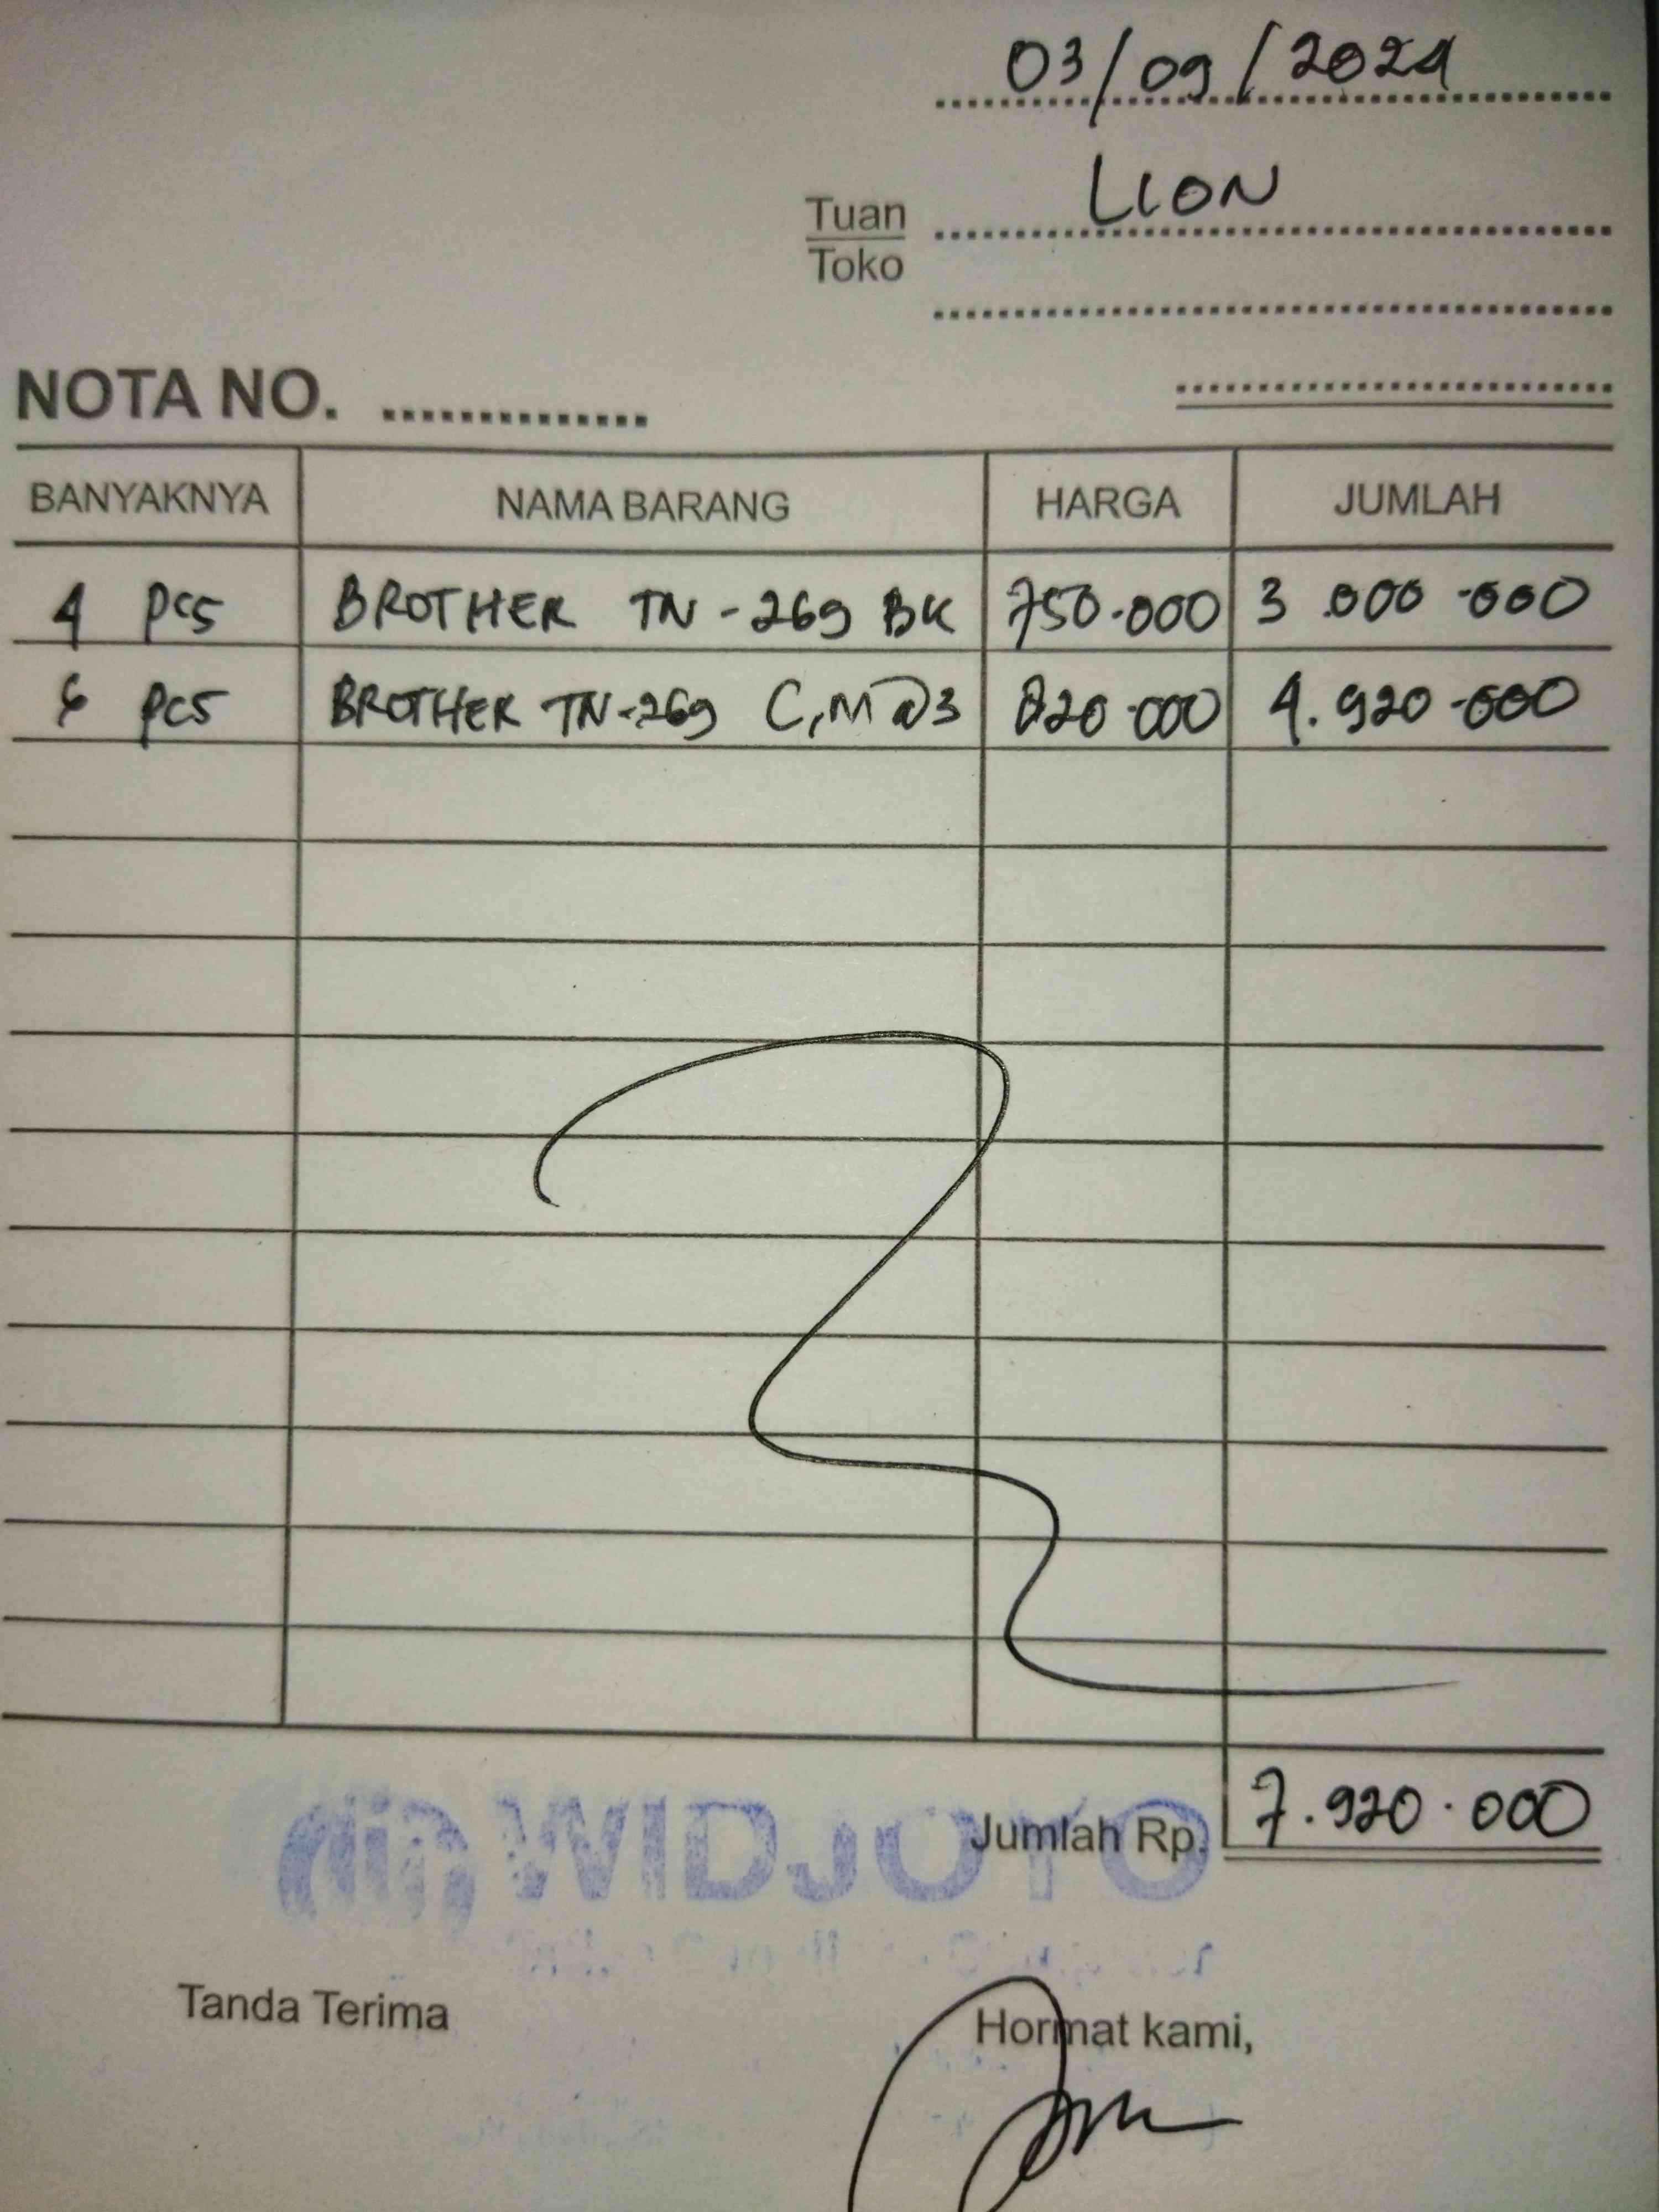 03/09/2024
Tuan LION
Toko
NOTA NO. ..............
BANYAKNYA NAMA BARANG HARGA JUMLAH
4 pcs BROTHER TN-269 BK 750.000 3.000.000
6 pcs BROTHER TN-269 C,M @3 820.000 4.920.000
Jumlah Rp. 7.920.000
WIDJOYO
Tanda Terima Hormat kami,